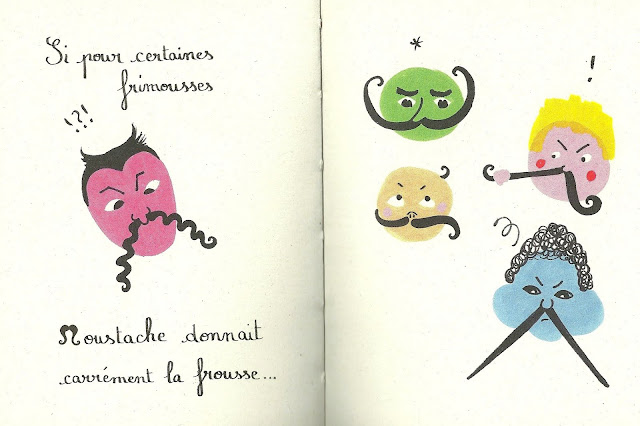 Si pour certaines
frimousses
!?!
Moustache donnait
carrément la frousse...
*
!